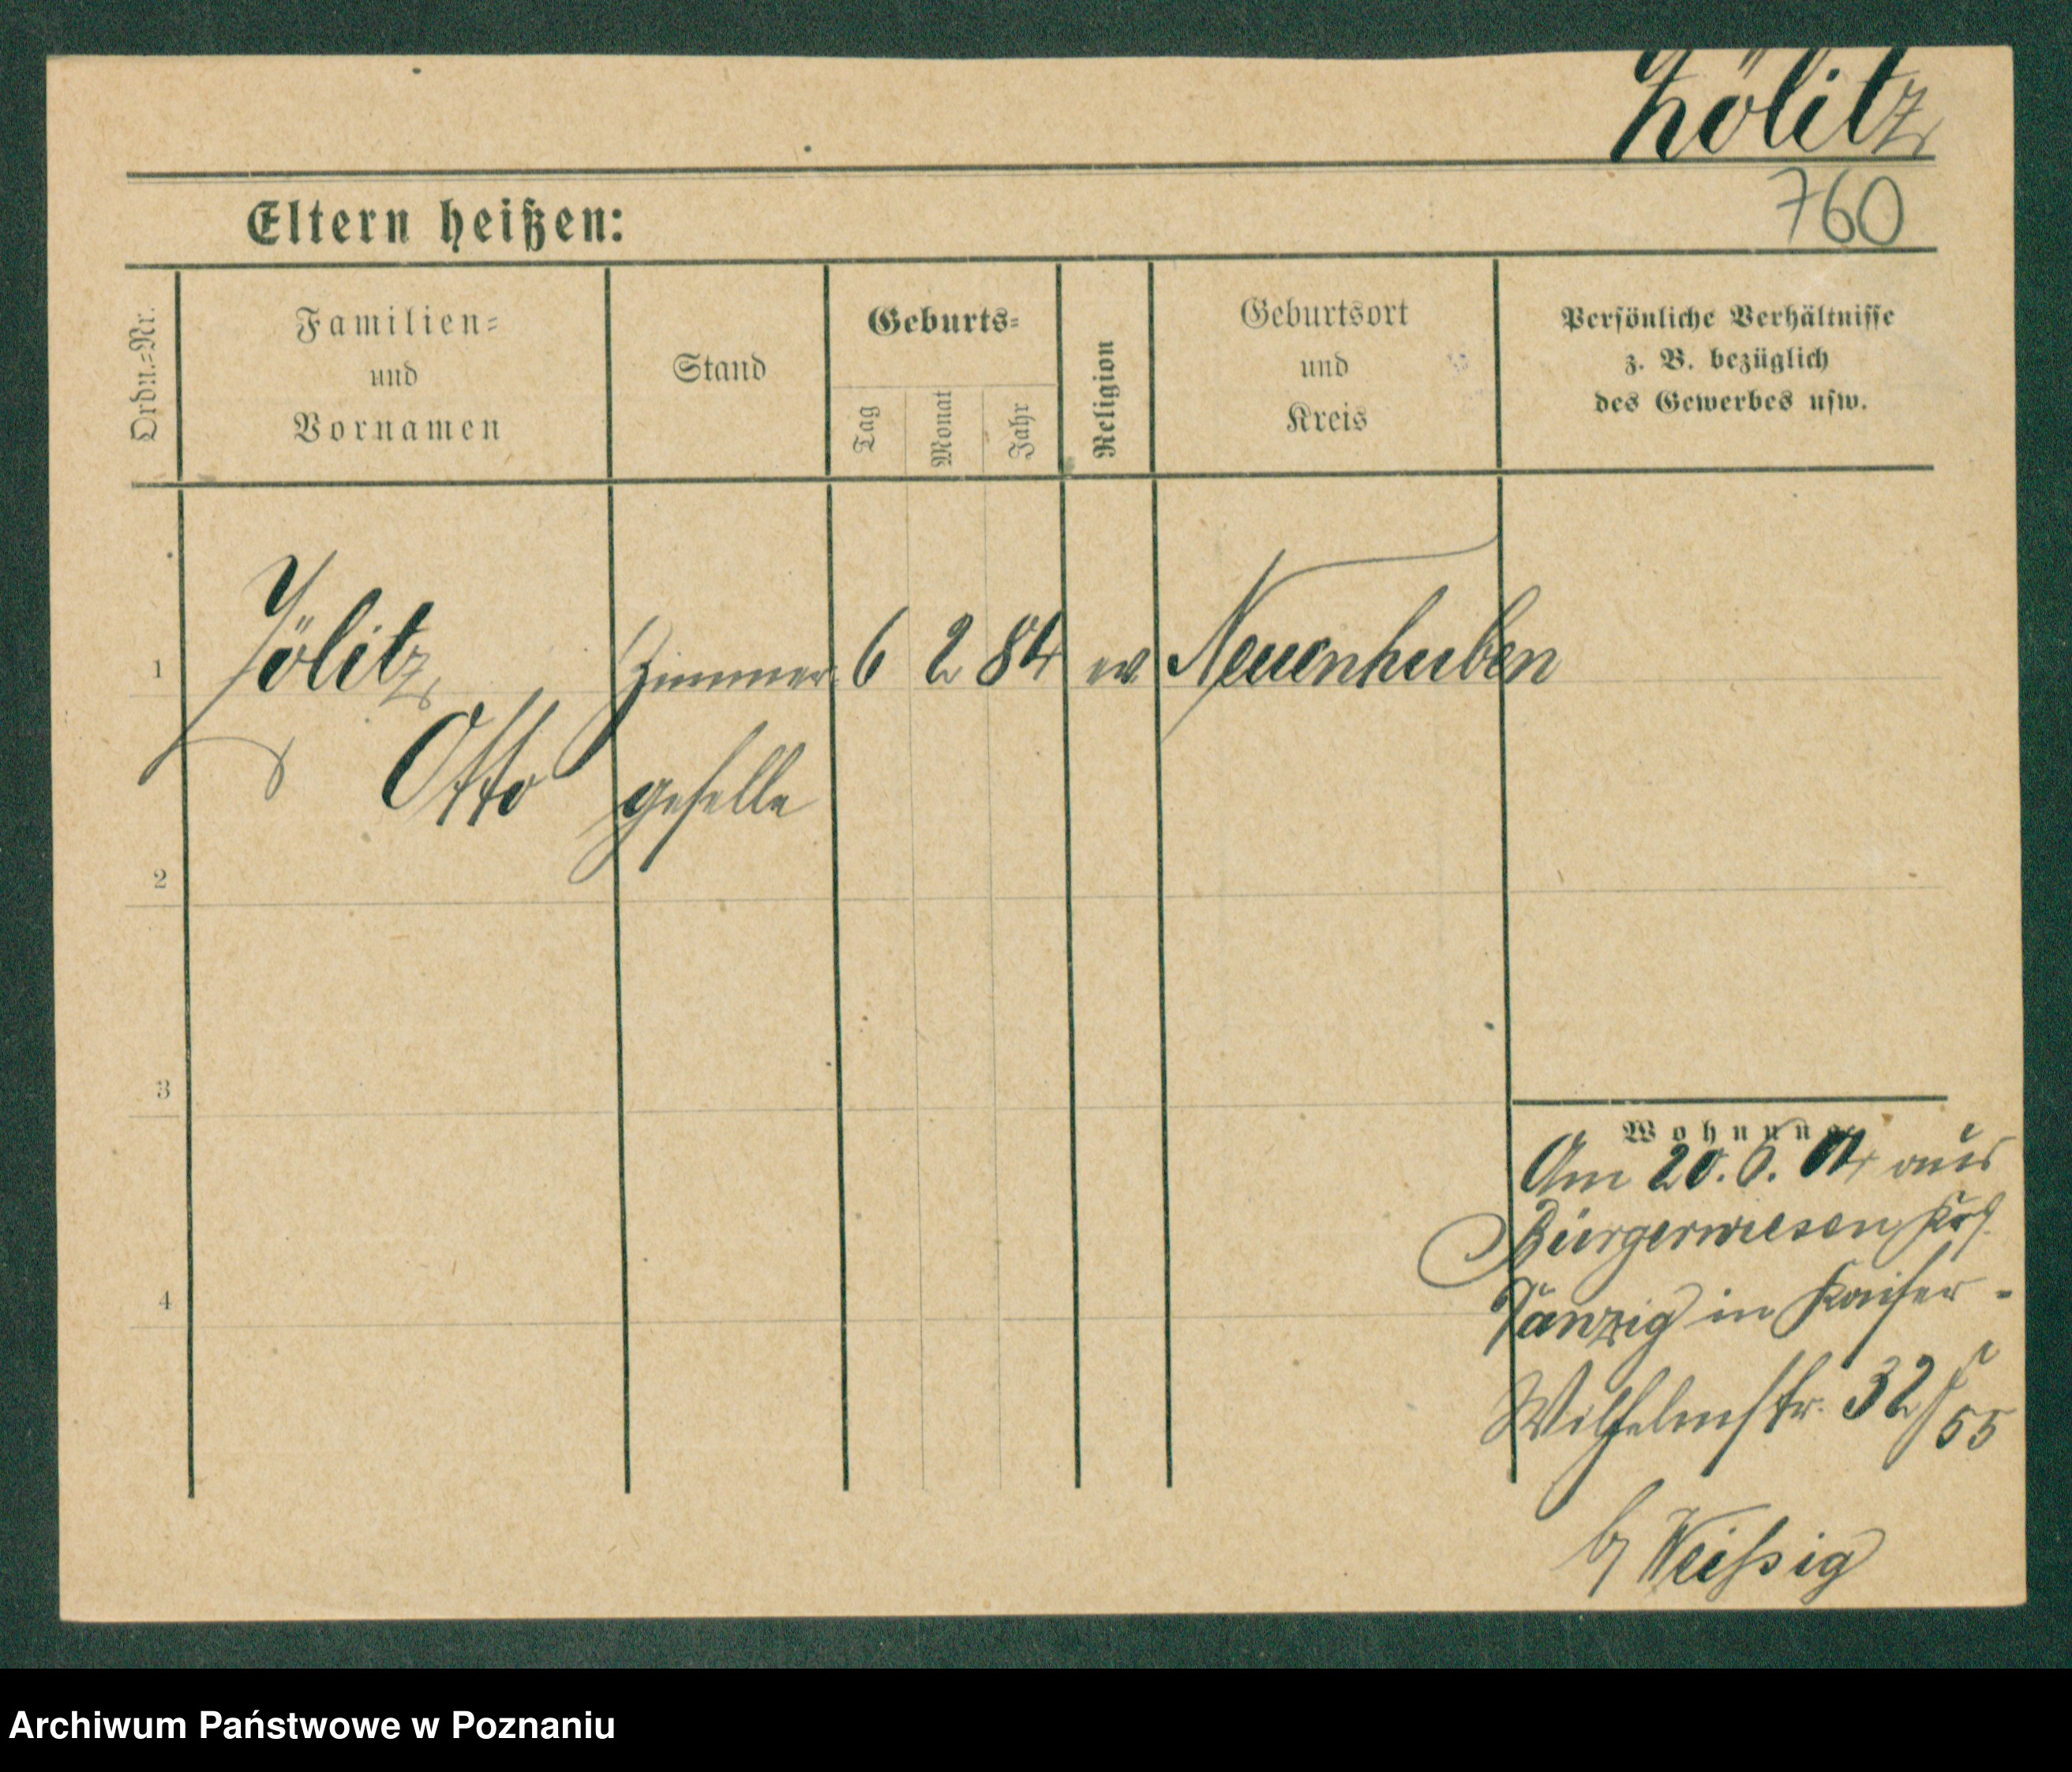 Zölitz
760
Eltern heißen:
Ordn.=Nr.
Familien=
und
Vornamen
Stand
Geburts=
Tag
Monat
Jahr
Religion
Geburtsort
und
Kreis
Persönliche Verhältnisse
z. B. bezüglich
des Gewerbes usw.
1 Zölitz Zimmer 6 2 84 ev Neuenhuben
Otto geselle
2
3
4
Wohnung
Am 20. 6. 04 aus
Bürgerwiesen Krs.
Danzig in Kaiser-
Wilhelmstr. 32/55
b/ Weißig
Archiwum Państwowe w Poznaniu